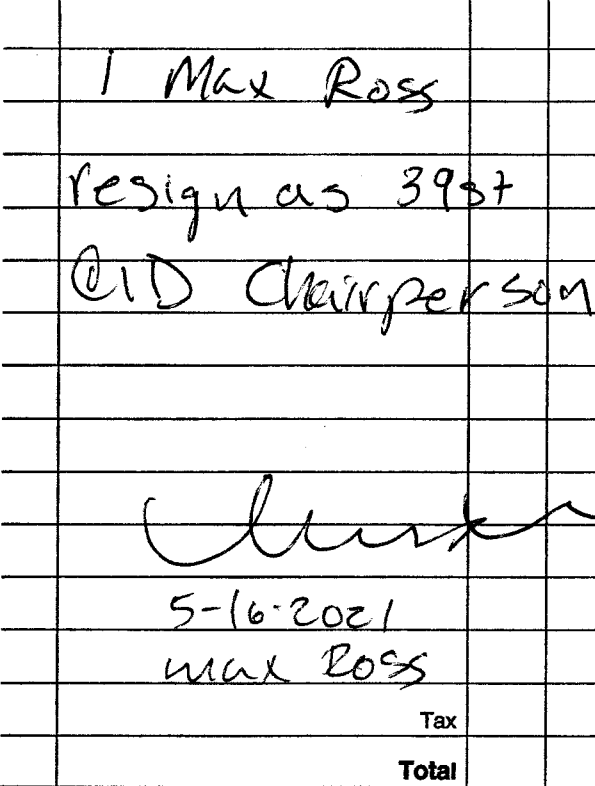 I Max Ross
resign as 39st
CID Chairperson
5-16-2021
Max Ross
Tax
Total